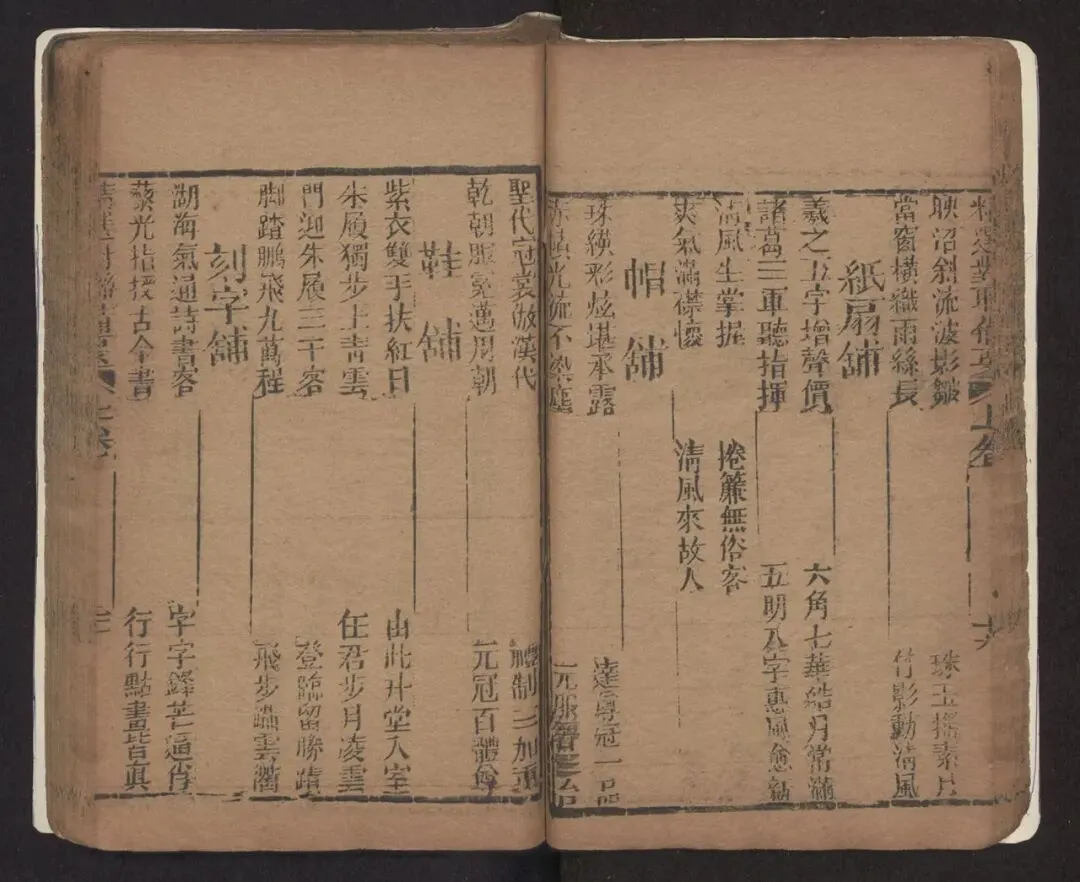 映沼斜流波影皺
珠玉搖素片
當窗橫織雨絲長
竹影動清風
紙扇舖
羲之五字增聲價
六角七華皓月常滿
諸葛三軍聽指揮
五明八字惠風愈
清風生掌握
捲簾無俗客
爽氣滿襟懷
清風來故人
帽舖
珠纓彩炫堪承露
冠一品
光流不染塵
聖代冠裳倣漢代
禮制三加重
乾朝服冕邁周朝
元冠百體
鞋舖
紫衣雙手扶紅日
由此升堂入室
朱履獨步上青雲
任君步月凌雲
門迎朱履三千客
登臨留勝蹟
脚踏鵬飛九萬程
飛步躡雲衢
刻字舖
湖海氣通詩書客
字字鋒芒逼肖
藜光指授古今書
行行點畫皆眞
上卷